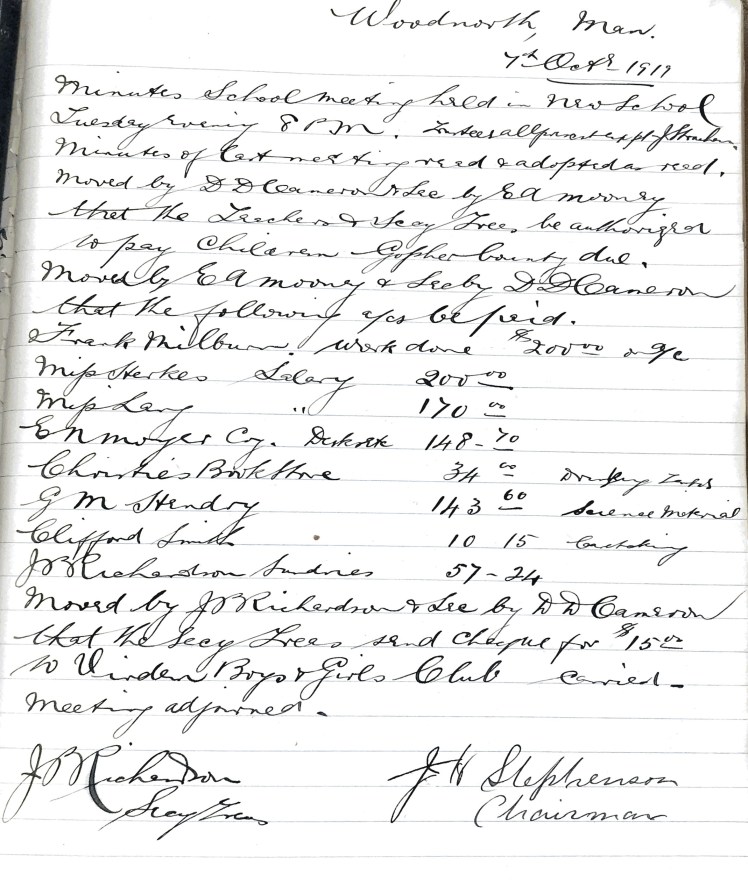 Woodnorth, Man.
7th Octr 1919
Minutes School meeting held in New School
Tuesday Evening 8 P.M. Trustees all present except J Strachan.
Minutes of last meeting read & adopted as read.
Moved by D D Cameron & Sec by E A Mooney
that the Teachers & Secy Treas, be authorized
to pay Children Gopher bounty due.
Moved by E A Mooney & Sec by D D Cameron
that the following a/cs be paid.
Frank Milburn. work done $200 00 on a/c
Miss Herkes Salary 200 00
Miss Lang " 170 00
E N Moyer Coy. Desks etc 148-70
Christies Book Store 34 00 Drinking
G M Hendry 143 60 Science Material
Clifford Smith 10 15 Caretaking
J B Richardson Sundries 57-24
Moved by J B Richardson & Sec by D D Cameron
that the Secy Treas send cheque for $15 00
to Virden Boys & Girls Club carried-
Meeting adjourned-
J B Richardson J H Stephenson
Secy Treas Chairman